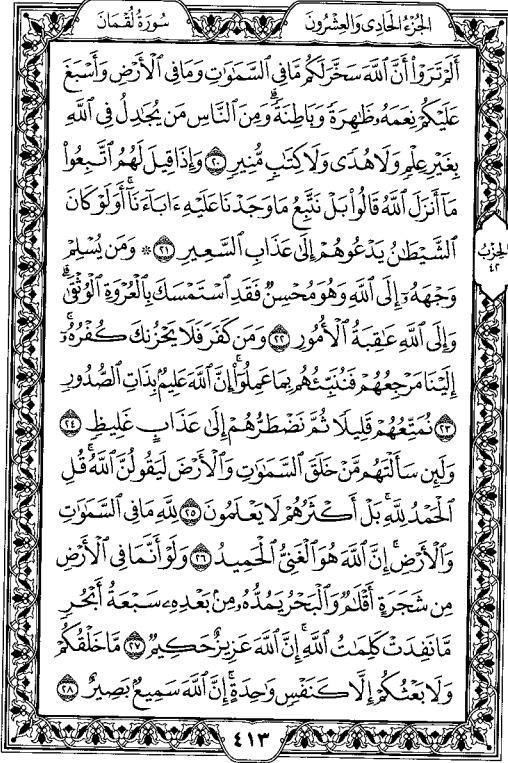 الجزء الحادى والعشرون
سورة لقمان
أَلَمْ تَرَوْا۟ أَنَّ ٱللَّهَ سَخَّرَ لَكُم مَّا فِى ٱلسَّمَٰوَٰتِ وَمَا فِى ٱلْأَرْضِ وَأَسْبَغَ
عَلَيْكُمْ نِعَمَهُۥ ظَٰهِرَةً وَبَاطِنَةً ۗ وَمِنَ ٱلنَّاسِ مَن يُجَٰدِلُ فِى ٱللَّهِ
بِغَيْرِ عِلْمٍ وَلَا هُدًى وَلَا كِتَٰبٍ مُّنِيرٍ ٢٠ وَإِذَا قِيلَ لَهُمُ ٱتَّبِعُوا۟
مَآ أَنزَلَ ٱللَّهُ قَالُوا۟ بَلْ نَتَّبِعُ مَا وَجَدْنَا عَلَيْهِ ءَابَآءَنَآ ۚ أَوَلَوْ كَانَ
ٱلشَّيْطَٰنُ يَدْعُوهُمْ إِلَىٰ عَذَابِ ٱلسَّعِيرِ ٢١ ۞ وَمَن يُسْلِمْ
الحزب
٤٢
وَجْهَهُۥٓ إِلَى ٱللَّهِ وَهُوَ مُحْسِنٌ فَقَدِ ٱسْتَمْسَكَ بِٱلْعُرْوَةِ ٱلْوُثْقَىٰ ۗ
وَإِلَى ٱللَّهِ عَٰقِبَةُ ٱلْأُمُورِ ٢٢ وَمَن كَفَرَ فَلَا يَحْزُنكَ كُفْرُهُۥٓ ۚ
إِلَيْنَا مَرْجِعُهُمْ فَنُنَبِّئُهُم بِمَا عَمِلُوٓا۟ ۚ إِنَّ ٱللَّهَ عَلِيمٌۢ بِذَاتِ ٱلصُّدُورِ
٢٣ نُمَتِّعُهُمْ قَلِيلًا ثُمَّ نَضْطَرُّهُمْ إِلَىٰ عَذَابٍ غَلِيظٍ ٢٤
وَلَئِن سَأَلْتَهُم مَّنْ خَلَقَ ٱلسَّمَٰوَٰتِ وَٱلْأَرْضَ لَيَقُولُنَّ ٱللَّهُ ۚ قُلِ
ٱلْحَمْدُ لِلَّهِ ۚ بَلْ أَكْثَرُهُمْ لَا يَعْلَمُونَ ٢٥ لِلَّهِ مَا فِى ٱلسَّمَٰوَٰتِ
وَٱلْأَرْضِ ۚ إِنَّ ٱللَّهَ هُوَ ٱلْغَنِىُّ ٱلْحَمِيدُ ٢٦ وَلَوْ أَنَّمَا فِى ٱلْأَرْضِ
مِن شَجَرَةٍ أَقْلَٰمٌ وَٱلْبَحْرُ يَمُدُّهُۥ مِنۢ بَعْدِهِۦ سَبْعَةُ أَبْحُرٍ
مَّا نَفِدَتْ كَلِمَٰتُ ٱللَّهِ ۗ إِنَّ ٱللَّهَ عَزِيزٌ حَكِيمٌ ٢٧ مَّا خَلْقُكُمْ
وَلَا بَعْثُكُمْ إِلَّا كَنَفْسٍ وَٰحِدَةٍ ۗ إِنَّ ٱللَّهَ سَمِيعٌۢ بَصِيرٌ ٢٨
٤١٣